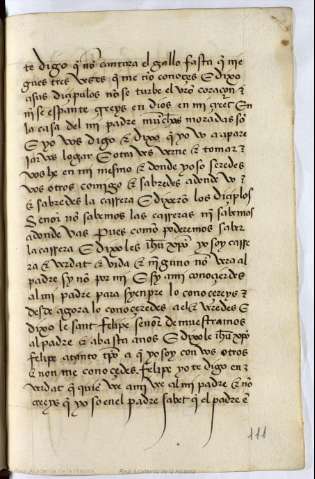 te digo q̃ nõ cantara el gallo fasta q̃ me
gues tres vezes q̃ me nõ conoçes E dixo
a sus diçipalos no se turbe el vr̃o coraçon ⁊
ni se espante creyes en dios en mi creet En
la casa del mi padre muchas moradas sõ
E yo vos digo ⁊ dixo q̃ yo vo a apare
jar vos logar E otra ves verne ⁊ tomar
vos he en mi mesmo ⁊ donde yo so seredes
vos otros comigo ⁊ sabredes adonde vo
⁊ sabredes la carrera E dixerõ los diçiplos
Señor no sabemos las carreras nj̃ sabemos
adonde vas Pues como poderemos saber
la carrera E dixoles ih̃u xp̃o yo soy carre
ra ⁊ verdat ⁊ vida ⁊ njnguno no verna al
padre sy nõ por mi E sy a mi conoçierdes
al mi padre para syenpre lo conoçereys ⁊
desde agora lo conoçeredes a el ⁊ veredes E
dixo le sant felipe señor demuestranos
al padre ⁊ abasta anos E dixole ih̃u xp̃o
felipe a tanto tp̃o a q̃ yo soy con vos otros
⁊ non me conoçedes. felipe yo te digo en
verdat q̃ quiẽ vee a mi vee al mi padre ⁊ nõ
creys q̃ yo so en el padre sabet q̃ el padre ẽ
111
Real Academia de la Historia